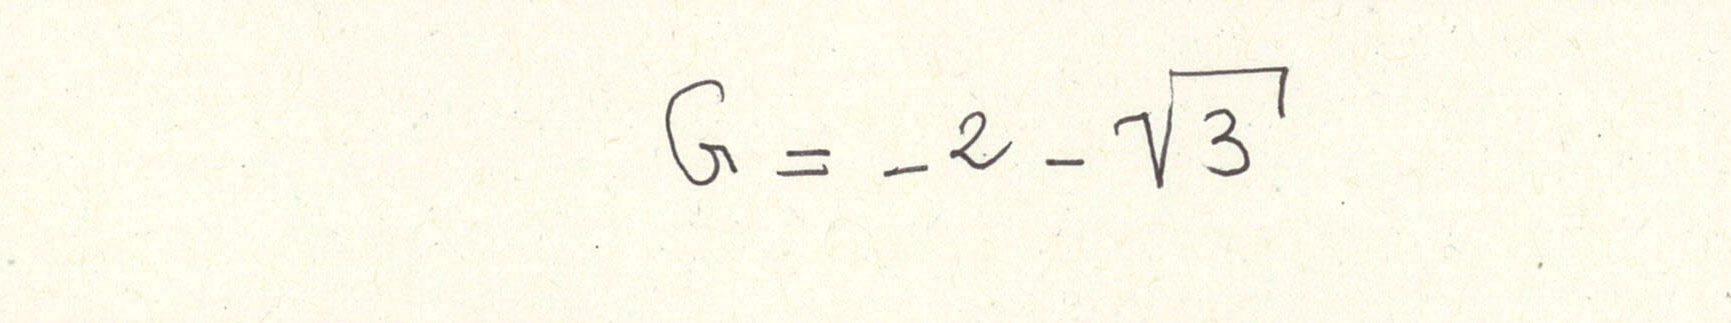 G = -2 - √3